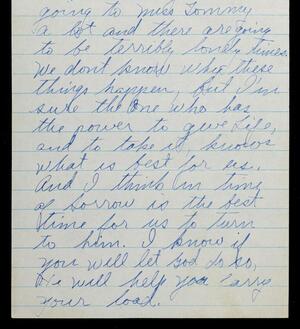 going to miss Tommy
a lot and there are going
to be terribly lonely times.
We don't know why these
things happen, but I'm
sure the One who has
the power to give life,
and to take it, knows
what is best for us.
And I think in time
of sorrow is the best
time for us to turn
to him. I know if
you will let God do so,
He will help you carry
your load.